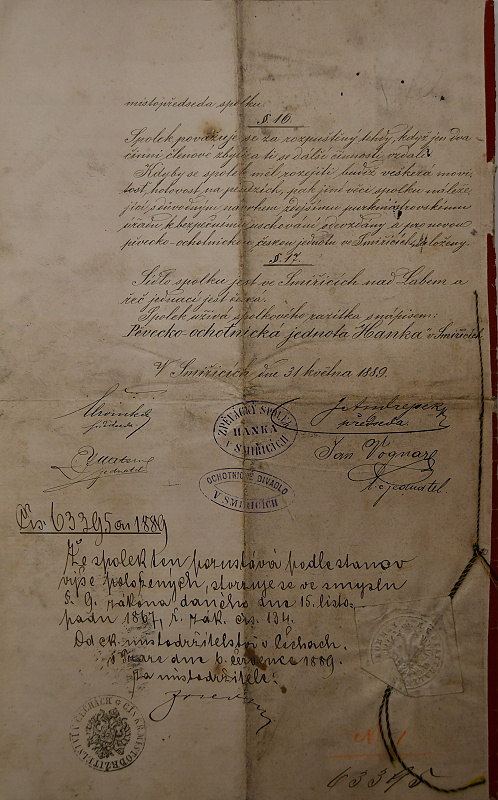 místopředseda spolku.
§. 16.
Spolek považuje se za rozpuštěný tehdy, když jen dva
činní členové zbyli a ti se další činnosti vzdali.
Kdyby se spolek měl rozejíti budiž veškerá movi-
tost, hotovost na penězích, pak jmění věci spolku nále-
jící s důvěrným návrhem zdejšímu purkmistrovskému
úřadu k bezpečnému uschování odevzdány a pro novou
pěvecko-ochotnickou českou jednotu ve Smiřicích, uloženy.
§. 17.
Sídlo spolku jest ve Smiřicích nad Labem a
řeč jednací jest česká.
Spolek užívá spolkového razítka s nápisem:
Pěvecko-ochotnická jednota "Hanka" v Smiřicích.
V Smiřicích dne 31 května 1889.
předseda
předseda.
jednatel.
Jan Vognar
jednatel.
ZPĚVÁCKÝ SPOLEK
HANKA
V SMIŘICÍCH
OCHOTNICKÉ DIVADLO
V SMIŘICÍCH
Čís 63395 ai 1889
Že spolek ten pozůstává podle stanov
výše položených, stvrzuje se ve smyslu
§. 9. zákona daného dne 15. listo-
padu 1867, ř. zák. čís. 134.
Od c. k. místodržitelství v Čechách.
V Praze dne 6. července 1889.
Za místodržitele:
C. K. MÍSTODRŽITELSTVÍ V ČECHÁCH